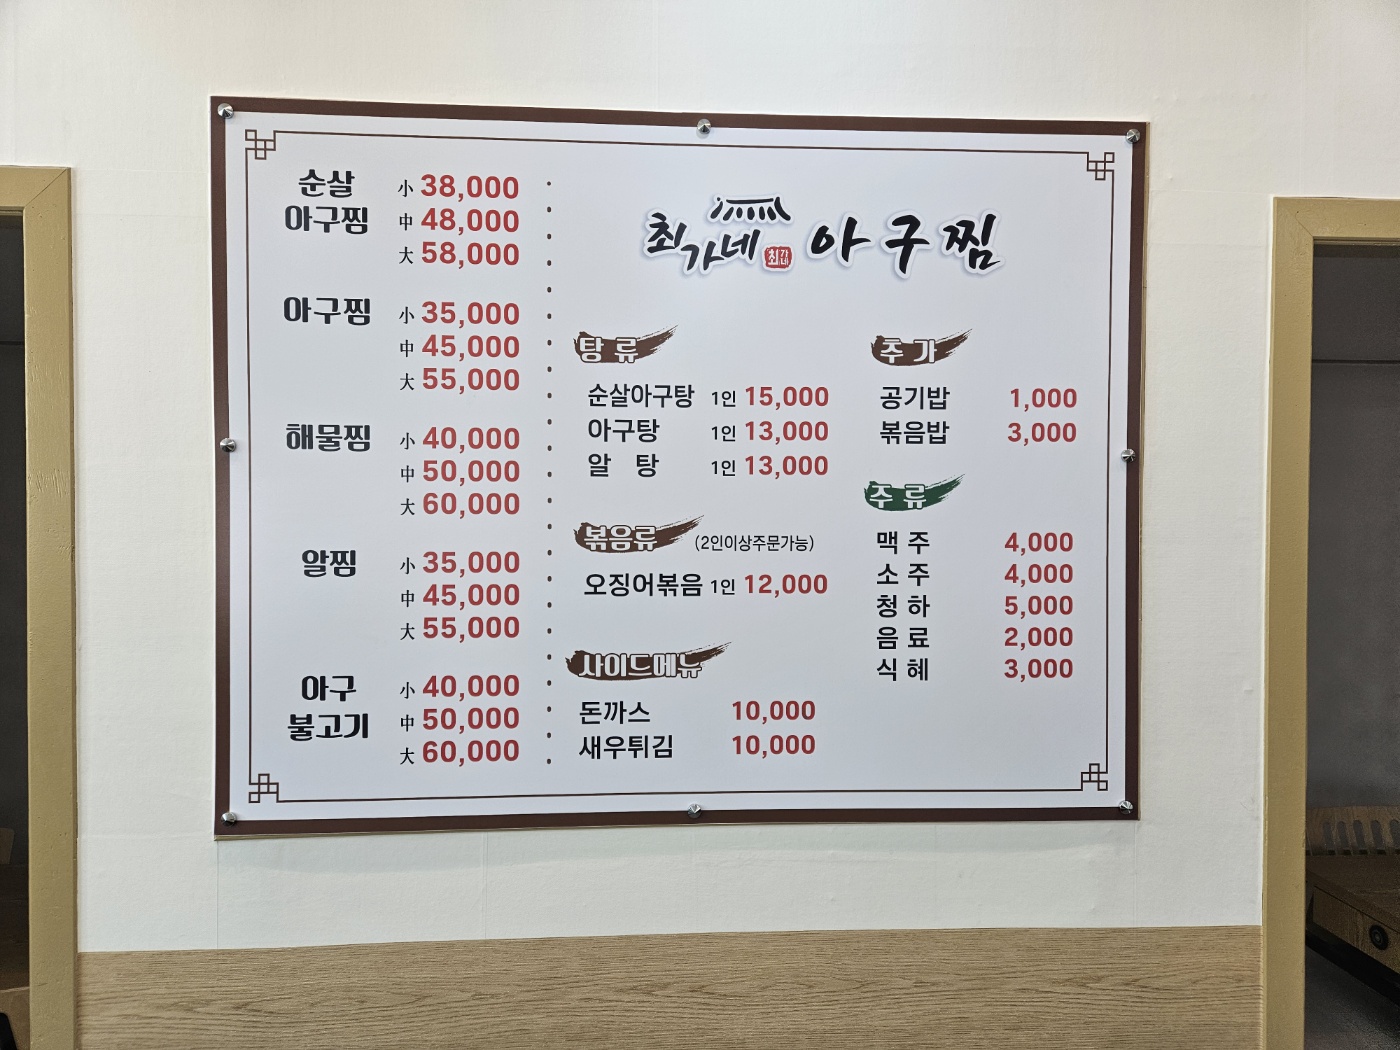 순살
아구찜
小 38,000
中 48,000
大 58,000
아구찜
小 35,000
中 45,000
大 55,000
해물찜
小 40,000
中 50,000
大 60,000
알찜
小 35,000
中 45,000
大 55,000
아구
불고기
小 40,000
中 50,000
大 60,000
최가네 최가네 아구찜
탕류
순살아구탕 1인 15,000
아구탕 1인 13,000
알 탕 1인 13,000
볶음류 (2인이상주문가능)
오징어볶음 1인 12,000
사이드메뉴
돈까스 10,000
새우튀김 10,000
추가
공기밥 1,000
볶음밥 3,000
주류
맥주 4,000
소주 4,000
청하 5,000
음료 2,000
식혜 3,000